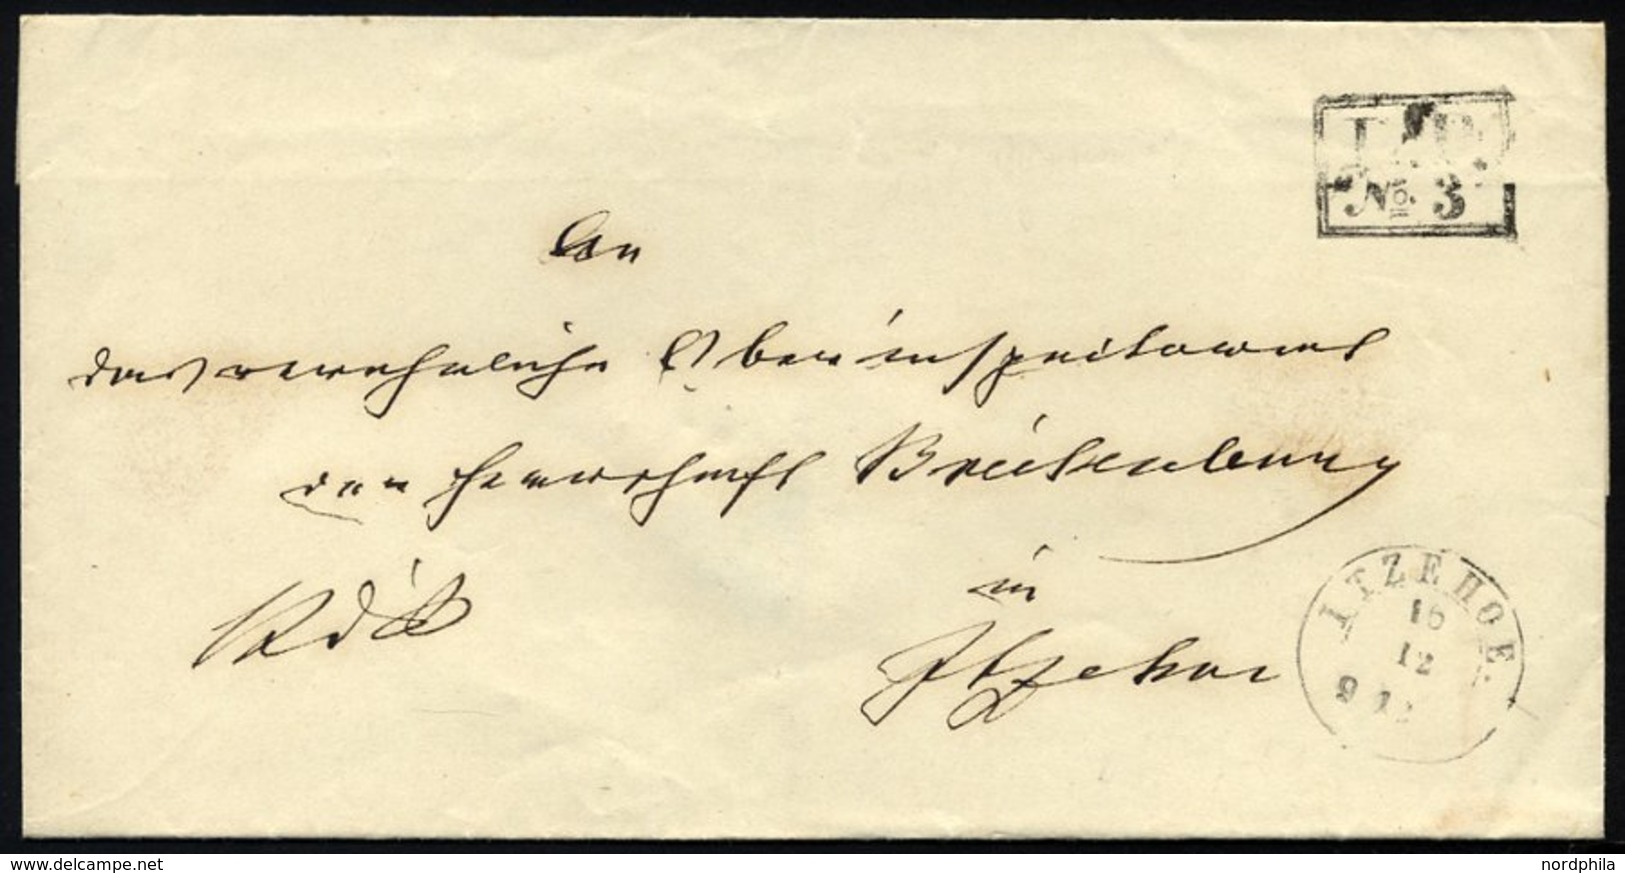 An
das verehrliche Oberinspectorat
der Herrschaft Breitenburg
in
Itzehoe
No. 3
ITZEHOE.
16
12
9 12
www.delcampe.net
nordphila